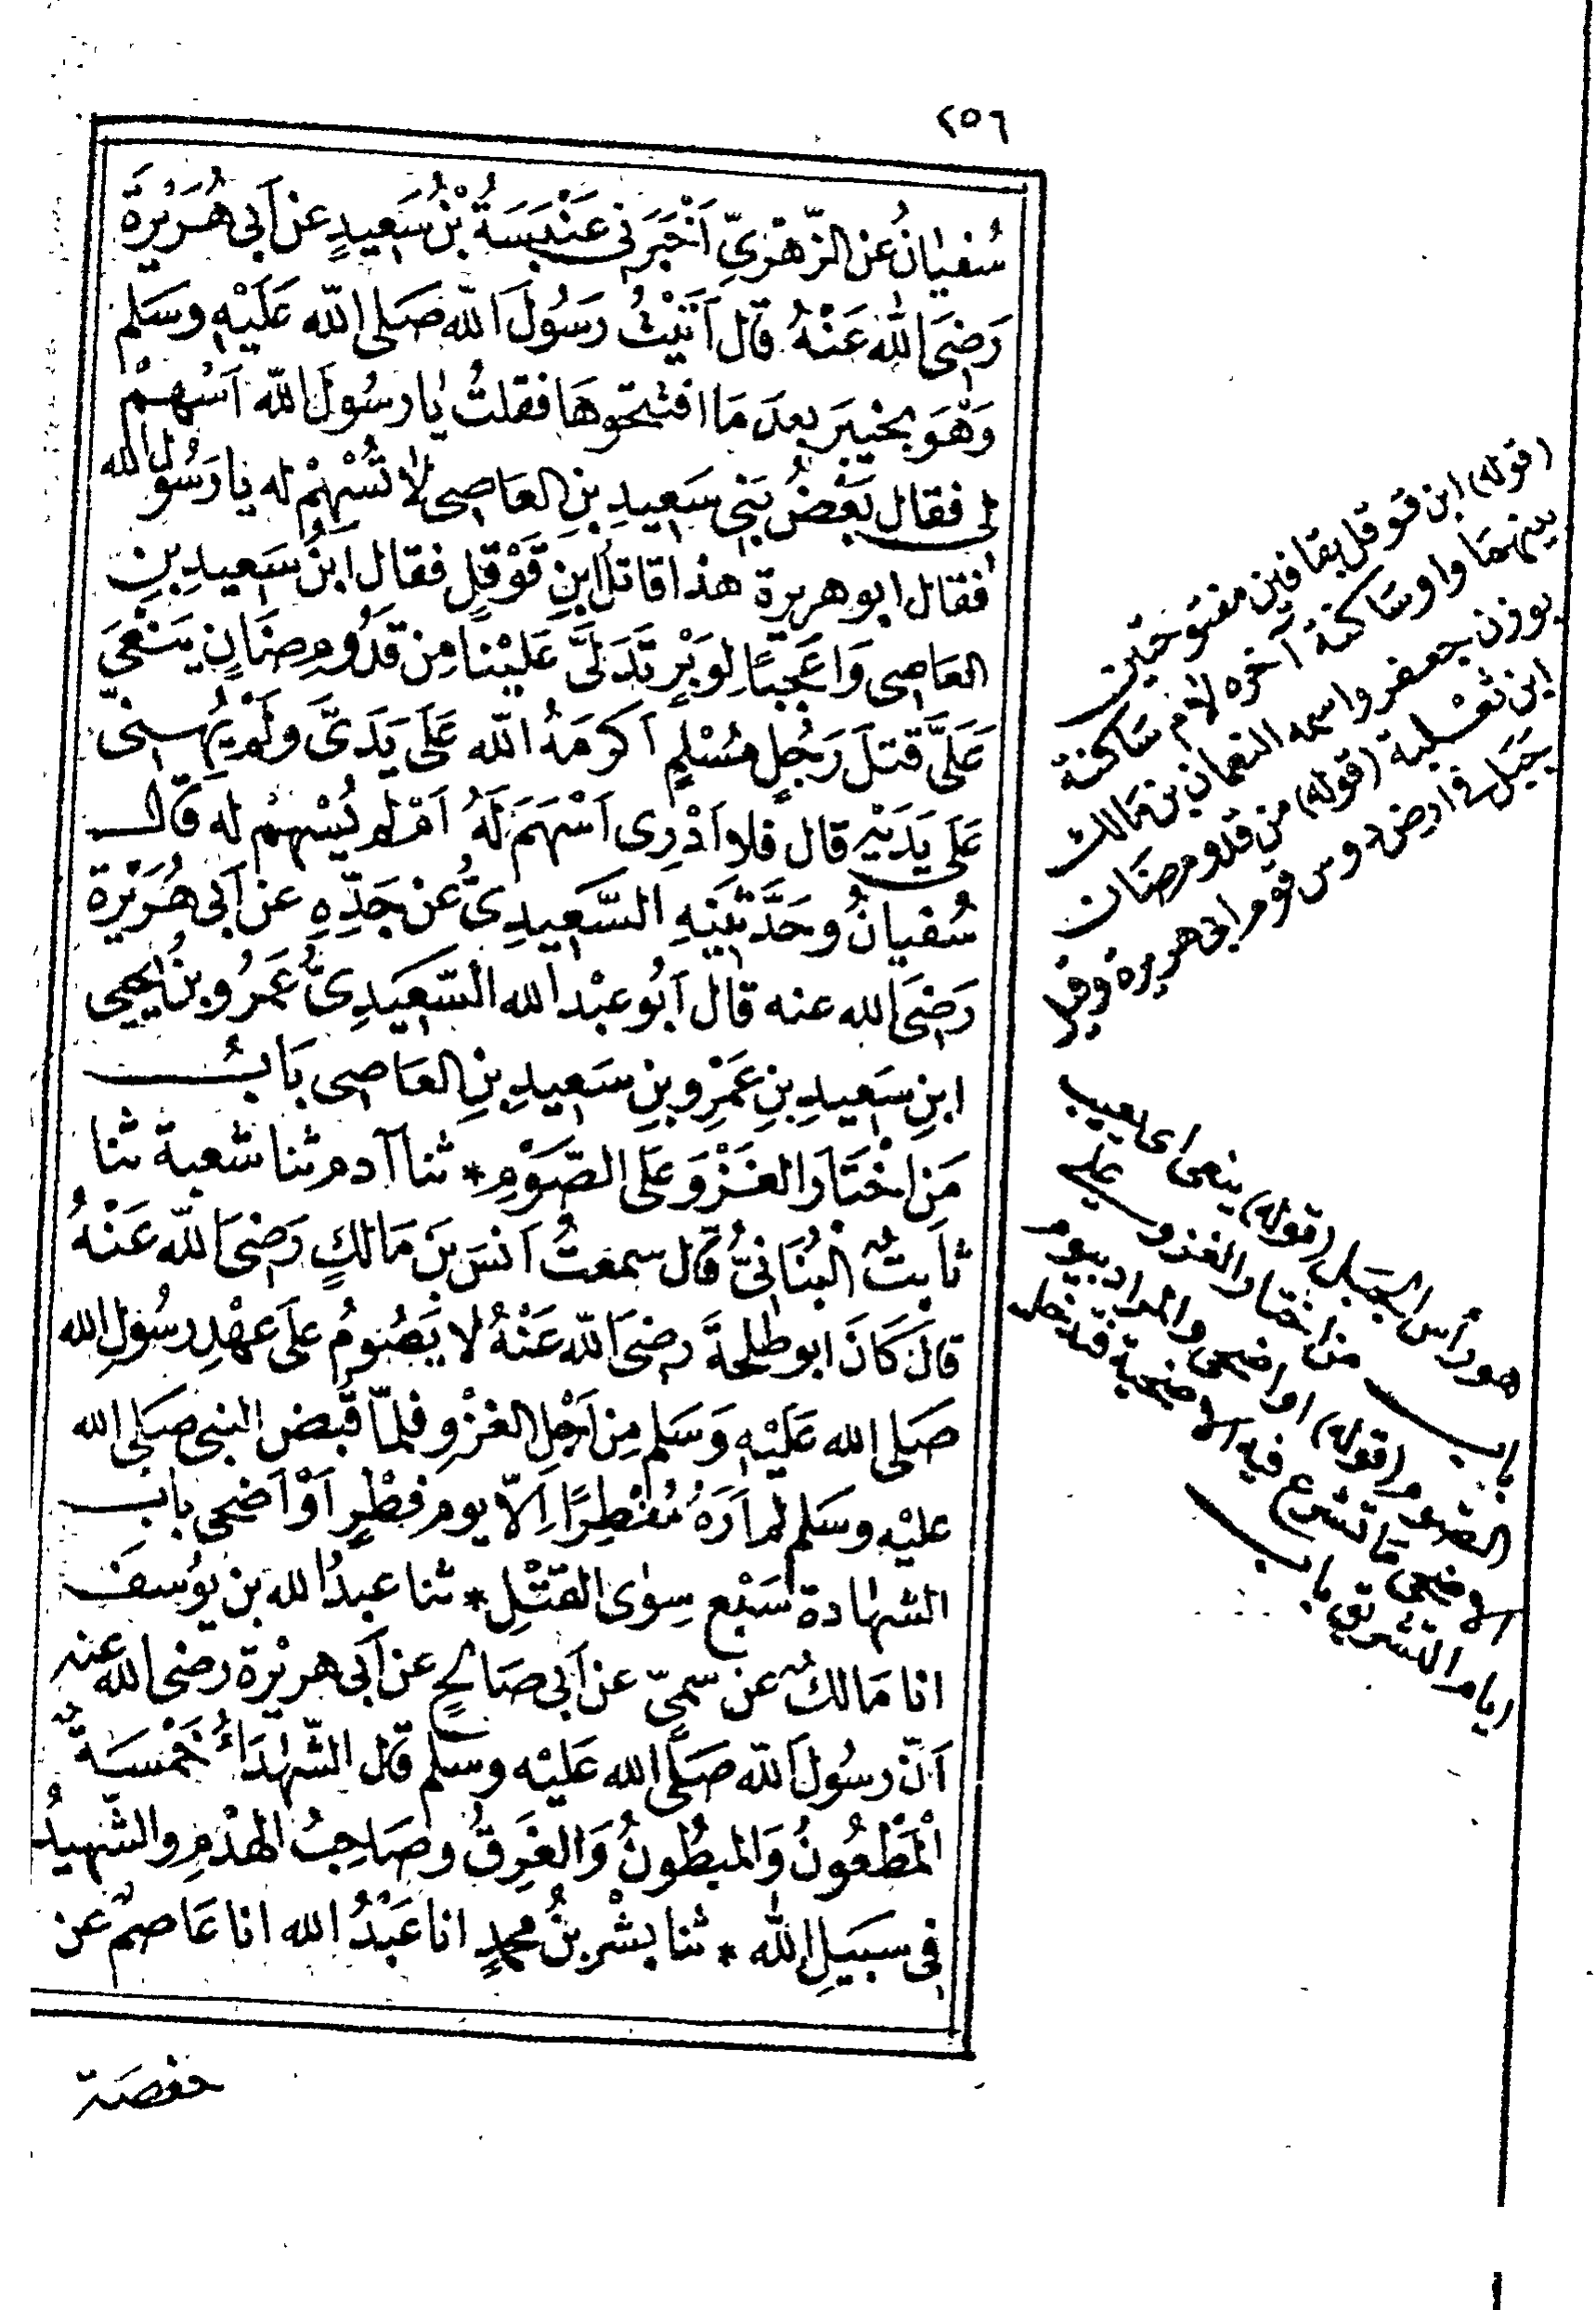 ٢٥٦
سُفيانُ عن الزّهْرِىِّ اَخْبَرَنى عَنْبَسَةُ بْنُ سَعِيدٍ عن اَبى هُرَيْرَةَ
رَضِىَ اللهُ عَنْهُ قال اَتَيْتُ رَسُولَ اللّه صَلى اللّه عَلَيْهِ وسَلم
وَهْوَ بخَيبَرَ بعدَ مَا افتتحوهَا فقلتُ يا رسُولَ اللّه اَسْهِمْ
لى فقال بَعْضُ بَنِى سَعِيدِ بنِ العَاصِى لا تُسْهِمْ له يا رَسُول الله
فقال ابو هريرة هذا قاتلُ ابنِ قَوْقلٍ فقال ابنُ سَعيدِ بنِ
العَاصِى وَا عَجَبًا لِوَبْرٍ تَدَلَّى عَلَيْنا مِن قَدُومِ ضَانٍ يَنْعَى
عَلَىَّ قتلَ رَجُلٍ مُسْلِمٍ اَكرَمَهُ اللّه عَلَى يَدَىَّ ولَمْ يُهِنِّى
عَلَى يَدَيْهِ قال فلا اَدْرِى اَسْهَمَ لَهُ اَمْ لم يُسْهِمْ له قال
سُفيانُ وحَدَّثَنِيهِ السَّعِيدِىُّ عن جَدِّهِ عن اَبى هُرَيْرة
رَضِىَ الله عنه قال اَبُو عبْد الله السَّعِيدِىُّ عَمْرُو بنُ يحيى
ابنِ سَعيدِ بنِ عَمْرِو بنِ سَعيدِ بنِ العَاصِى بَابُ
مَنِ اخْتَارَ الغَزْوَ عَلى الصَّوْمِ * ثنا آدم ثنا شعبة ثنا
ثابتٌ البُنَانىُّ قال سمعتُ اَنسَ بنَ مَالكٍ رَضِىَ اللّه عَنْهُ
قالَ كَانَ ابو طلحَةَ رضِىَ اللّه عَنْهُ لا يَصُومُ عَلَى عَهْدِ رسُولِ الله
صَلى الله عَلَيْهِ وَسَلم مِن اَجْلِ الغزْوِ فلمّا قُبض النبى صَلى الله
عليْهِ وسَلم لم اَرَهُ مُفْطِرًا اِلّا يوم فِطْرٍ اَوْ اَضْحى باب
الشهادة سَبْع سِوى القَتْلِ * ثنا عبدُ الله بن يوُسفَ
انا مَالكٌ عن سمىّ عن اَبى صَالحٍ عن اَبى هريْرة رضى الله عنه
اَنّ رسُولَ اللّه صَلَّى الله عَليْه وسلم قال الشّهدَاءُ خَمْسَةٌ
اَلْمَطْعُونُ وَالمبطُونُ وَالغَرِقُ وصَاحِبُ الهَدْمِ والشّهيدُ
فى سبَيلِ الله * ثنا بشْر بنُ محمدٍ انا عَبْدُ الله انا عَاصمٌ عن
حفصة
(قوله) ابن قوقل بقافين مفتوحتين
بينهما واو ساكنة آخره لام ساكنة
بوزن جعفر واسمه النعمان بن مالك
ابن ثعلبة (قوله) من قدوم ضان
جبل فى ارض دوس قوم ابى هريرة وقيل
هو رأس الجبل (قوله) ينعى اى يعيب
باب من اختار الغزو على
الصوم (قوله) او اضحى والمراد بيوم
الاضحى ما تشرع فيه الاضحية فتدخل
ايام التشريق باب